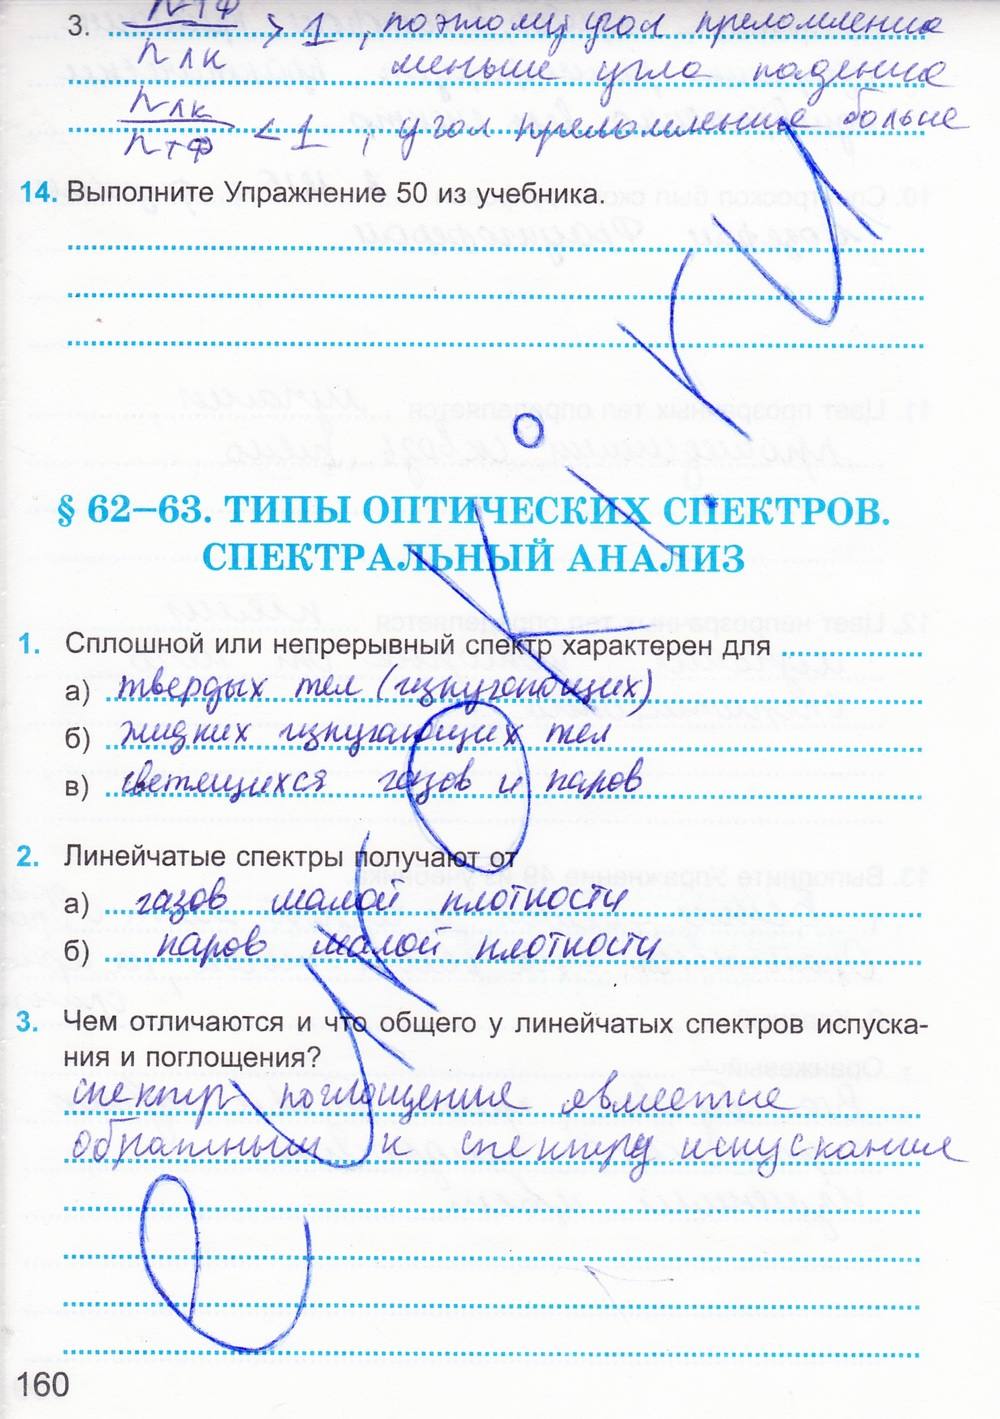 3. nтф/nлк > 1, поэтому угол преломления
меньше угла падения
nлк/nтф < 1, угол преломления больше
14. Выполните Упражнение 50 из учебника.
§ 62–63. ТИПЫ ОПТИЧЕСКИХ СПЕКТРОВ.
СПЕКТРАЛЬНЫЙ АНАЛИЗ
1. Сплошной или непрерывный спектр характерен для
а) твердых тел (излучающих)
б) жидких излучающих тел
в) светящихся газов и паров
2. Линейчатые спектры получают от
а) газов малой плотности
б) паров малой плотности
3. Чем отличаются и что общего у линейчатых спектров испуска-
ния и поглощения?
спектр поглощения является
обратным к спектру испускания
160